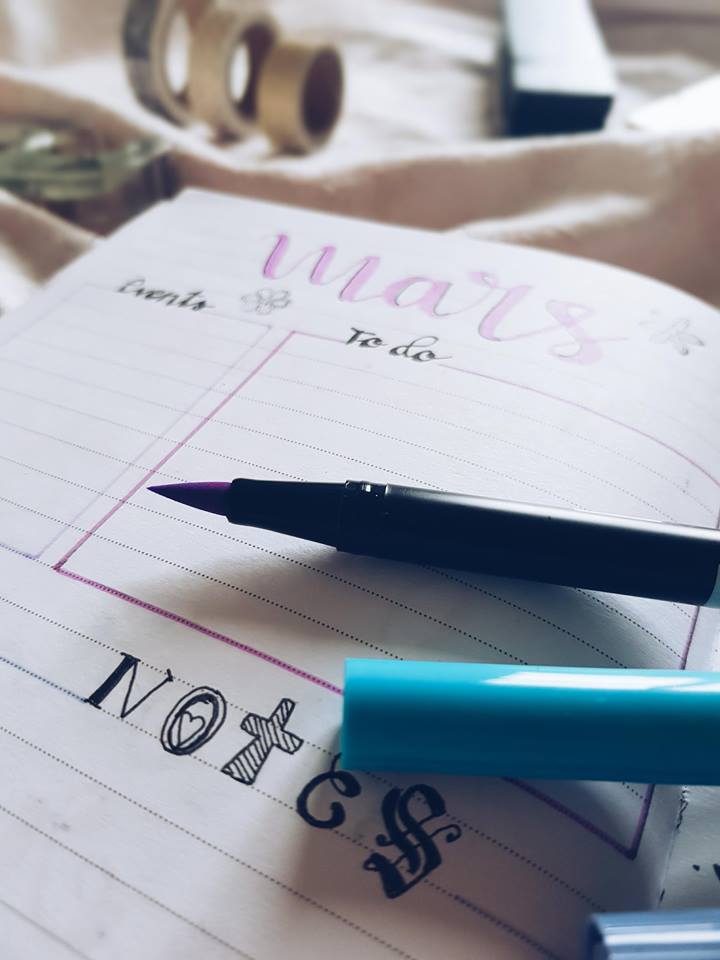 mars
Events
To do
Notes